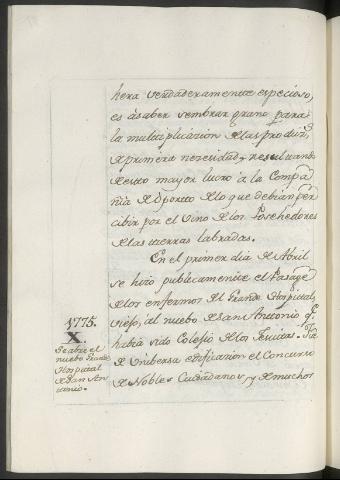 hera verdaderamente especioso,
es á saber sembrar grano para
la multiplicacion de las produc.s
de primera necesidad, y resultando
de esto mayor lucro a la Compa
ñia de Oporto de lo que debian per
cibir por el vino de los Poschedores
de las tierras labradas.
En el primer dia de Abril
se hizo publicamente el Pasage
de los enfermos del Grande Hospital
viejo, al nuebo de San Antonio q.e
había sido Colesio de los Jesuitas.
de Unibersal edificacion el Concurso
de Nobles Ciudadanos, y de muchos
1775.
X.
Se abre el
nuebo Grande
Hospital
de San An
tonio.